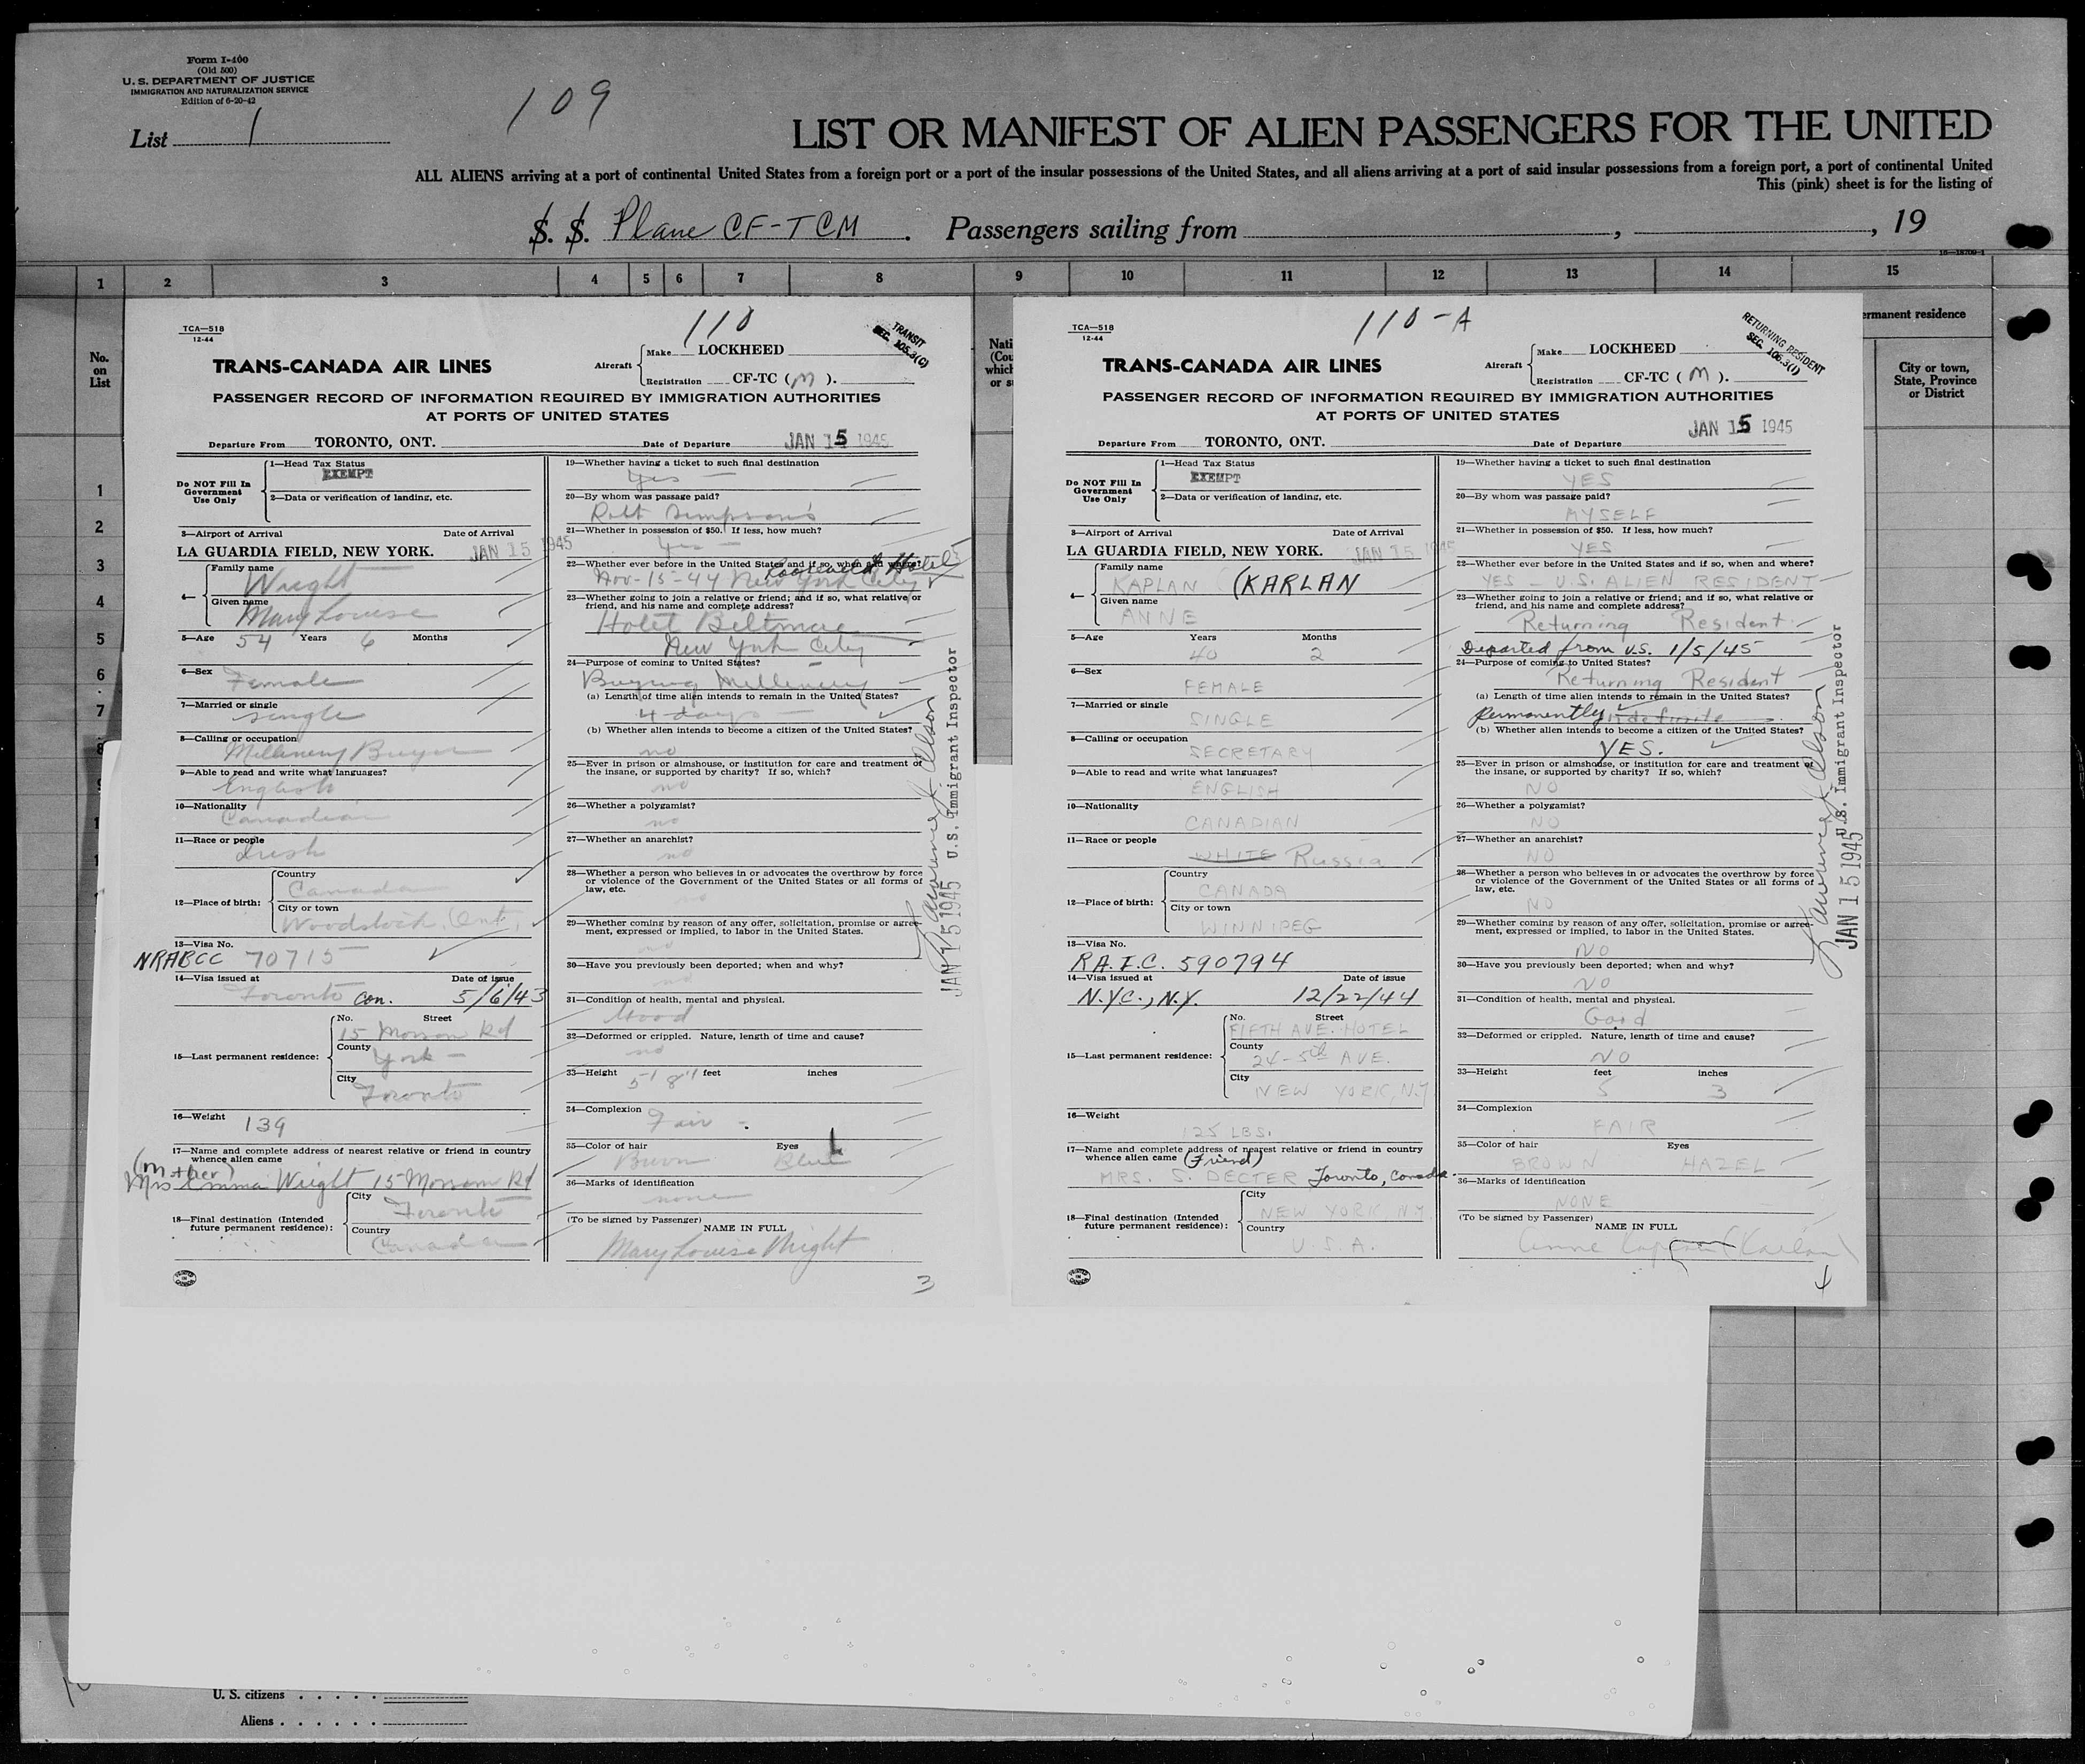 Form I-400
(Old 500)
U. S. DEPARTMENT OF JUSTICE
IMMIGRATION AND NATURALIZATION SERVICE
Edition of 6-20-42
List 1
109
LIST OR MANIFEST OF ALIEN PASSENGERS FOR THE UNITED
ALL ALIENS arriving at a port of continental United States from a foreign port or a port of the insular possessions of the United States, and all aliens arriving at a port of said insular possessions from a foreign port, a port of continental United
This (pink) sheet is for the listing of
S. S. Plane CF-TCM . Passengers sailing from , , 19
1 2 3 4 5 6 7 8 9 10 11 12 13 14 15
No.
on
List
1
2
3
4
5
6
7
8
ermanent residence
City or town,
State, Province
or District
TCA—518
12-44
110
TRANSIT
SEC. 105.3(C)
TRANS-CANADA AIR LINES
Aircraft
Make LOCKHEED
Registration CF-TC (M).
PASSENGER RECORD OF INFORMATION REQUIRED BY IMMIGRATION AUTHORITIES
AT PORTS OF UNITED STATES
Departure From TORONTO, ONT. Date of Departure JAN 15 1945
Do NOT Fill In
Government
Use Only
1—Head Tax Status
EXEMPT
2—Data or verification of landing, etc.
3—Airport of Arrival Date of Arrival
LA GUARDIA FIELD, NEW YORK. JAN 15 1945
4—
Family name
Wright
Given name
Mary Louise
5—Age 54 Years 6 Months
6—Sex Female
7—Married or single
single
8—Calling or occupation
Millinery Buyer
9—Able to read and write what languages?
English
10—Nationality
Canadian
11—Race or people
Irish
12—Place of birth:
Country
Canada
City or town
Woodstock, Ont.
13—Visa No.
NRABCC 70715
14—Visa issued at Date of issue
Toronto Con. 5/6/43
15—Last permanent residence:
No. Street
15 Rd
County
York
City
Toronto
16—Weight
139
17—Name and complete address of nearest relative or friend in country
whence alien came
(mother)
Mrs Emma Wright 15 Rd
18—Final destination (Intended
future permanent residence):
City
Toronto
Country
Canada
19—Whether having a ticket to such final destination
Yes
20—By whom was passage paid?
Robt Simpson's
21—Whether in possession of $50. If less, how much?
Yes
22—Whether ever before in the United States and if so, when and where?
Roosevelt Hotel
Nov-15-44 New York City
23—Whether going to join a relative or friend; and if so, what relative or
friend, and his name and complete address?
Hotel Biltmore
New York City
24—Purpose of coming to United States?
Buying Millinery
(a) Length of time alien intends to remain in the United States?
4 days
(b) Whether alien intends to become a citizen of the United States?
no
25—Ever in prison or almshouse, or institution for care and treatment of
the insane, or supported by charity? If so, which?
no
26—Whether a polygamist?
no
27—Whether an anarchist?
no
28—Whether a person who believes in or advocates the overthrow by force
or violence of the Government of the United States or all forms of
law, etc.
no
29—Whether coming by reason of any offer, solicitation, promise or agree-
ment, expressed or implied, to labor in the United States.
no
30—Have you previously been deported; when and why?
no
31—Condition of health, mental and physical.
Good
32—Deformed or crippled. Nature, length of time and cause?
no
33—Height 5' 8" feet inches
34—Complexion
Fair
35—Color of hair Eyes
Brown Blue
36—Marks of identification
none
(To be signed by Passenger)
NAME IN FULL
Mary Louise Wright
3
JAN 15 1945 U.S. Immigrant Inspector
PRINTED
IN
CANADA
TCA—518
12-44
110-A
RETURNING RESIDENT
SEC. 106.3(1)
TRANS-CANADA AIR LINES
Aircraft
Make LOCKHEED
Registration CF-TC (M).
PASSENGER RECORD OF INFORMATION REQUIRED BY IMMIGRATION AUTHORITIES
AT PORTS OF UNITED STATES
Departure From TORONTO, ONT. Date of Departure JAN 15 1945
Do NOT Fill In
Government
Use Only
1—Head Tax Status
EXEMPT
2—Data or verification of landing, etc.
3—Airport of Arrival Date of Arrival
LA GUARDIA FIELD, NEW YORK. JAN 15 1945
4—
Family name
KAPLAN (KARLAN
Given name
ANNE
5—Age Years Months
40 2
6—Sex
FEMALE
7—Married or single
SINGLE
8—Calling or occupation
SECRETARY
9—Able to read and write what languages?
ENGLISH
10—Nationality
CANADIAN
11—Race or people
WHITE Russia
12—Place of birth:
Country
CANADA
City or town
WINNIPEG
13—Visa No.
R.A.I.C. 590794
14—Visa issued at Date of issue
N.Y.C., N.Y. 12/22/44
15—Last permanent residence:
No. Street
FIFTH AVE. HOTEL
County
24-5th AVE.
City
NEW YORK, N.Y
16—Weight
125 LBS.
17—Name and complete address of nearest relative or friend in country
whence alien came (Friend)
MRS. S. DECTER Toronto, Canada.
18—Final destination (Intended
future permanent residence):
City
NEW YORK, N.Y.
Country
U.S.A.
19—Whether having a ticket to such final destination
YES
20—By whom was passage paid?
MYSELF
21—Whether in possession of $50. If less, how much?
YES
22—Whether ever before in the United States and if so, when and where?
YES - U.S. ALIEN RESIDENT
23—Whether going to join a relative or friend; and if so, what relative or
friend, and his name and complete address?
Returning Resident.
Departed from U.S. 1/5/45
24—Purpose of coming to United States?
Returning Resident
(a) Length of time alien intends to remain in the United States?
Permanently indefinite
(b) Whether alien intends to become a citizen of the United States?
YES.
25—Ever in prison or almshouse, or institution for care and treatment of
the insane, or supported by charity? If so, which?
NO
26—Whether a polygamist?
NO
27—Whether an anarchist?
NO
28—Whether a person who believes in or advocates the overthrow by force
or violence of the Government of the United States or all forms of
law, etc.
NO
29—Whether coming by reason of any offer, solicitation, promise or agree-
ment, expressed or implied, to labor in the United States.
NO
30—Have you previously been deported; when and why?
NO
31—Condition of health, mental and physical.
Good
32—Deformed or crippled. Nature, length of time and cause?
NO
33—Height feet inches
5 3
34—Complexion
FAIR
35—Color of hair Eyes
BROWN HAZEL
36—Marks of identification
NONE
(To be signed by Passenger)
NAME IN FULL
Anne Kaplan (Karlan)
4
JAN 15 1945 U.S. Immigrant Inspector
PRINTED
IN
CANADA
U. S. citizens
Aliens